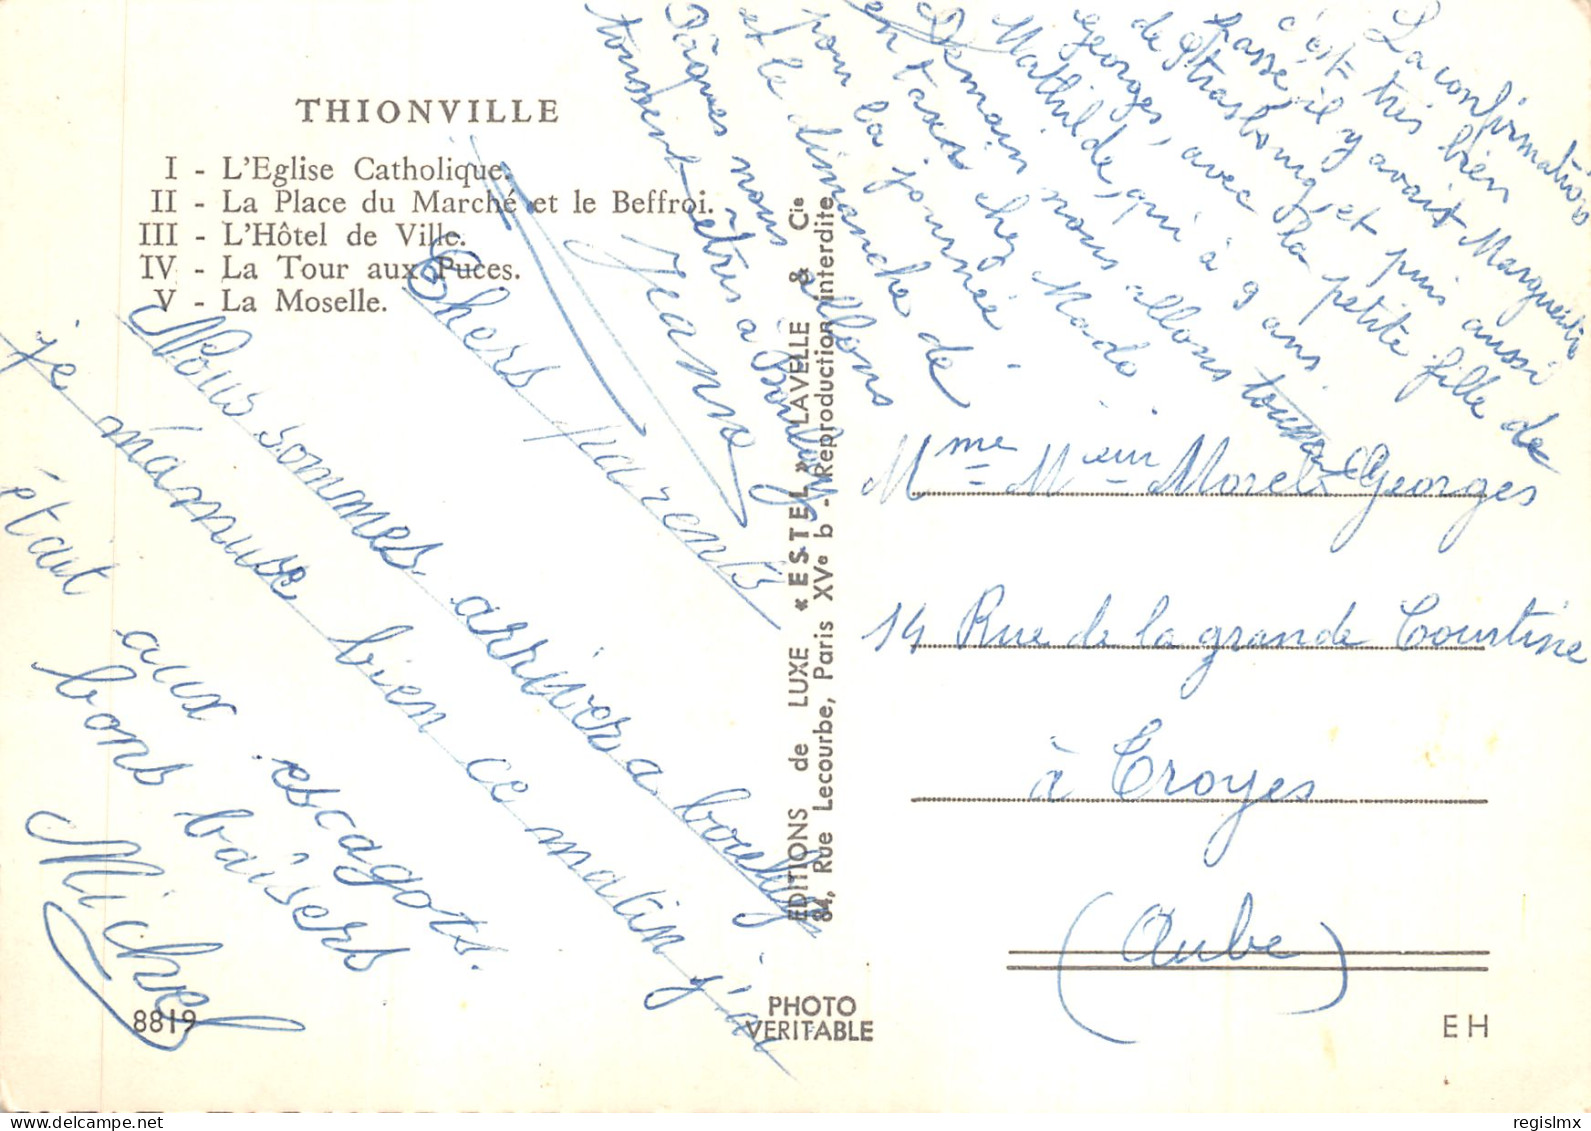 THIONVILLE
I - L'Eglise Catholique.
II - La Place du Marché et le Beffroi.
III - L'Hôtel de Ville.
IV - La Tour aux Puces.
V - La Moselle.
Chers parents
Nous sommes arriver a boulay
je m'amuse bien ce matin j'ai
était aux escagots.
bons baisers
Michel
La confirmation
c'est très bien
passé, il y avait Marguerite
de Strasbourg, et puis aussi
Georges, avec la petite fille de
Mathilde, qui à 9 ans.
Demain nous allons
en taxi chez Mado
pour la journée.
et le dimanche de
Pâques nous allons
tous être à Boulay
Jeanne
EDITIONS de LUXE « ESTEL » LAVELLE & Cie
84, Rue Lecourbe, Paris XVe b - Reproduction interdite
Mme Mr Morel Georges
14 Rue de la grande Courtine
à Troyes
(Aube)
8819
PHOTO
VERITABLE
EH
regislmx